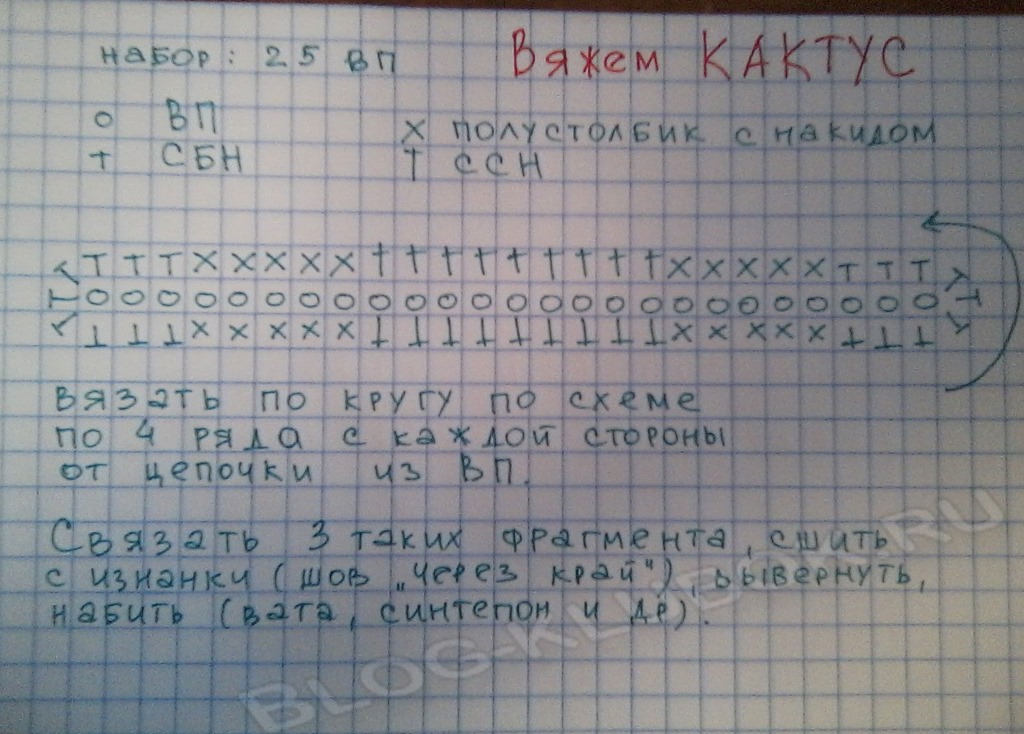 набор: 25 ВП Вяжем КАКТУС
о ВП х полустолбик с накидом
+ СБН † ССН
т Т Т Т X X X X X † † † † † † † † † X X X X X Т Т Т т
Т О О О О О О О О О О О О О О О О О О О О О О О О О Т
т Т Т Т X X X X X Т Т Т Т Т Т Т Т Т X X X X X Т Т Т т
Вязать по кругу по схеме
по 4 ряда с каждой стороны
от цепочки из ВП.
Связать 3 таких фрагмента, сшить
с изнанки (шов „через край"), вывернуть,
набить (вата, синтепон и др).
BLOG-KLUBOK.RU